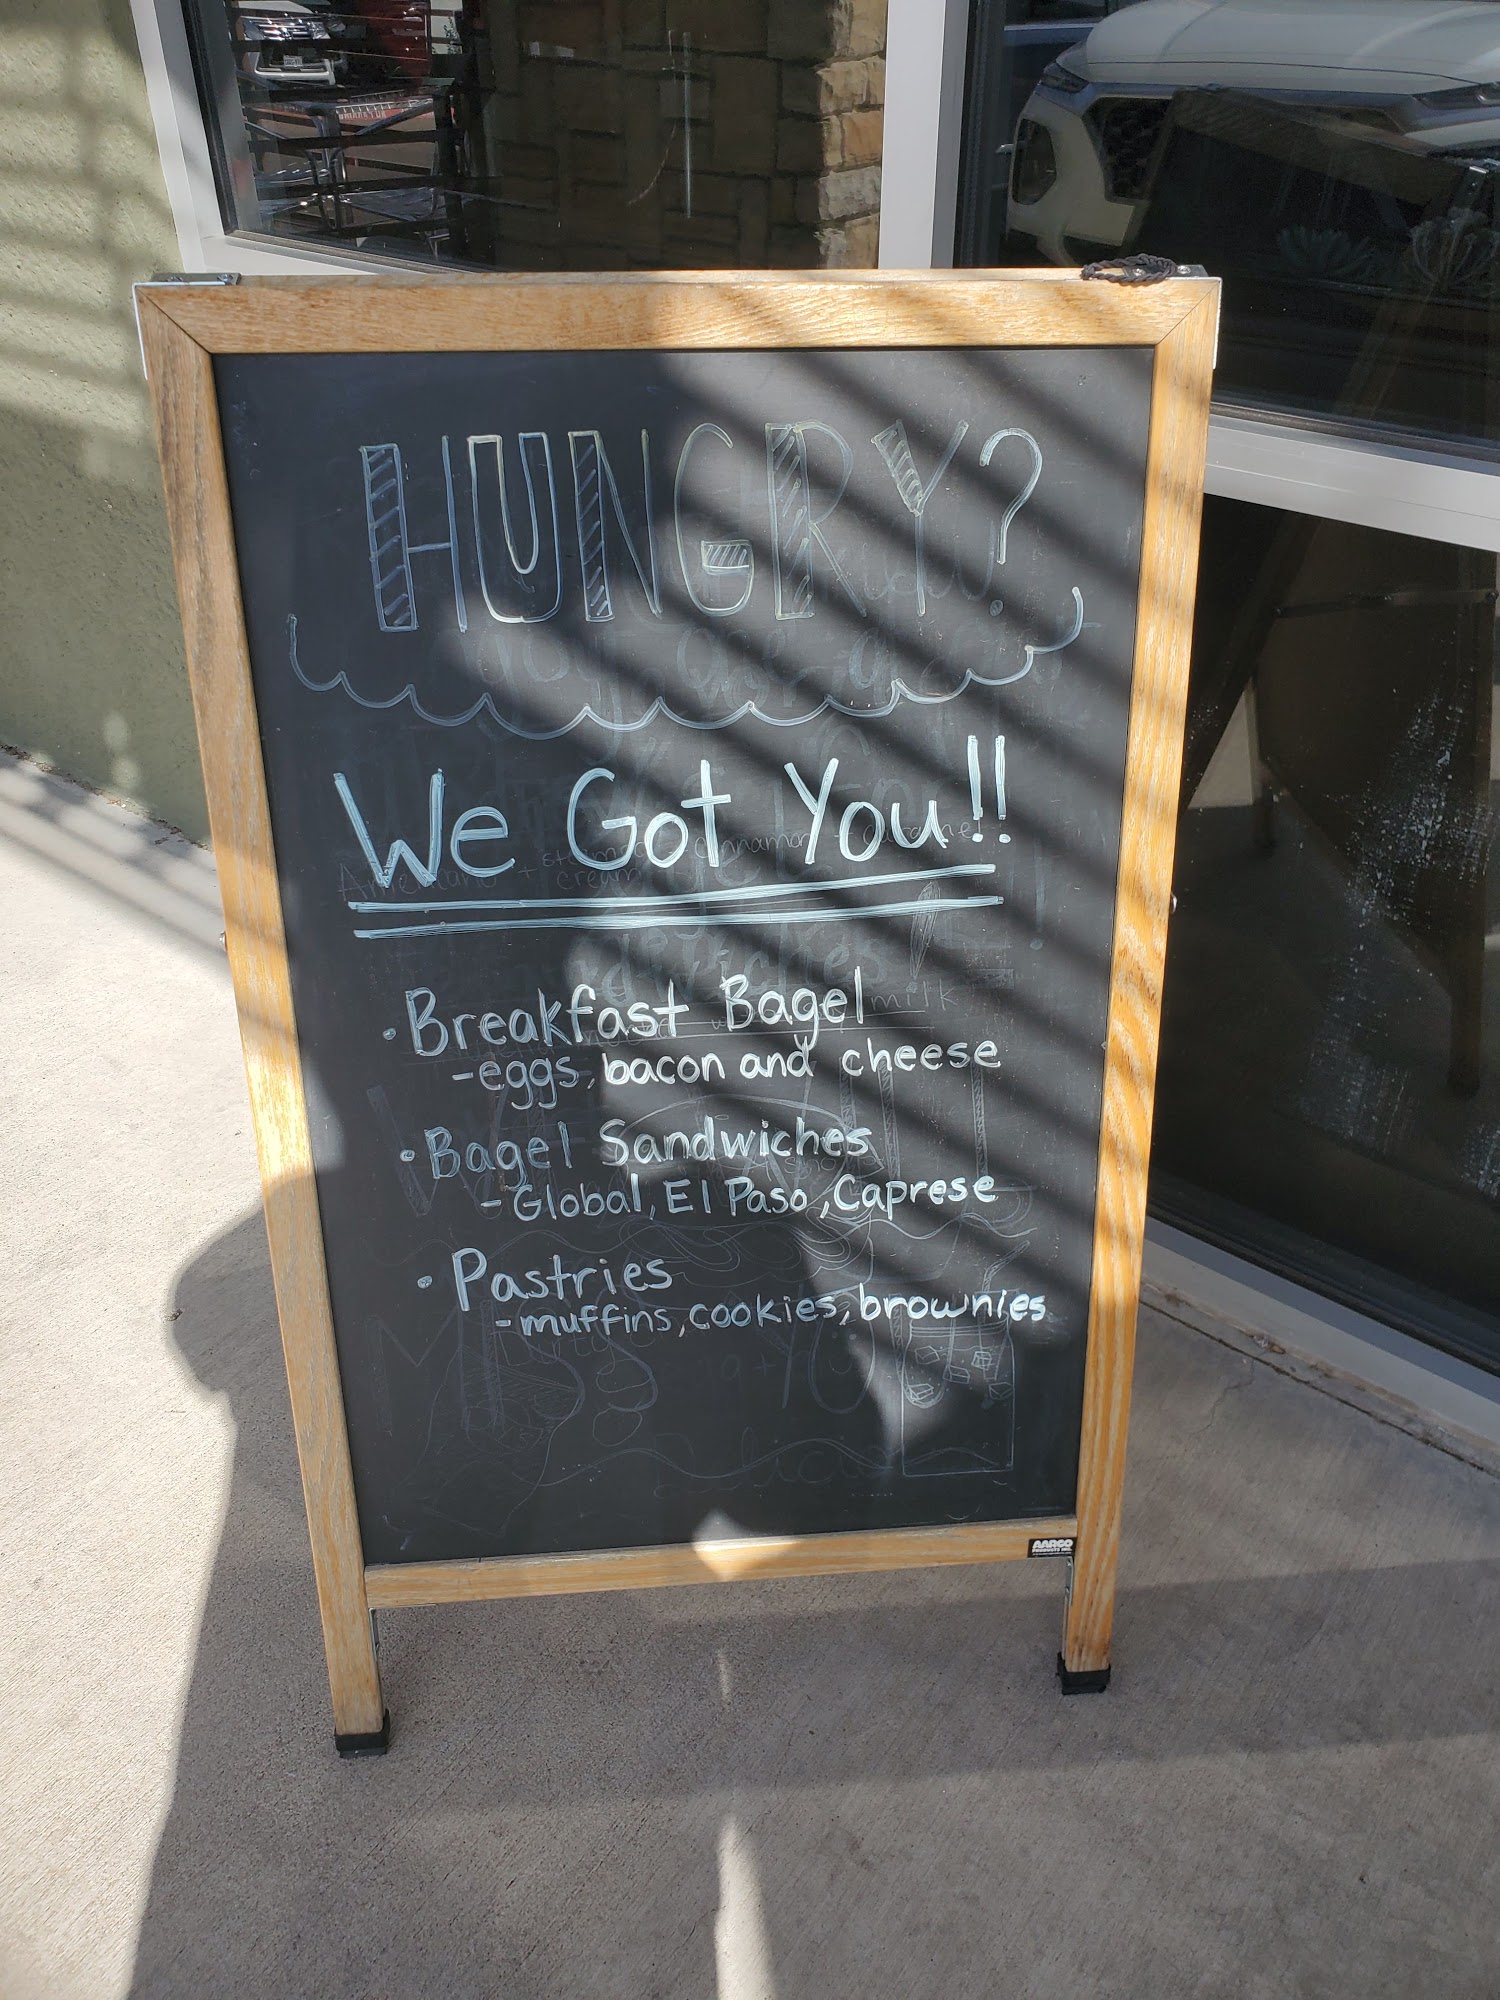 HUNGRY?
We Got You!!
• Breakfast Bagel
- eggs, bacon and cheese
• Bagel Sandwiches
- Global, El Paso, Caprese
• Pastries
- muffins, cookies, brownies
AARCO
PRODUCTS INC.